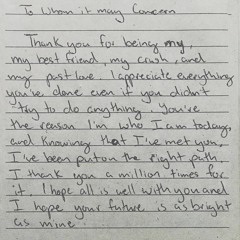 To Whom it may Concern
Thank you for being my,
my best friend, my crush, and
my past love. I appreciate everything
you've done even if you didn't
try to do anything. You've
the reason I'm who I am today,
and knowing that I've met you,
I've been put on the right path.
I thank you a million times for
it. I hope all is well with you and
I hope your future is as bright
as mine.